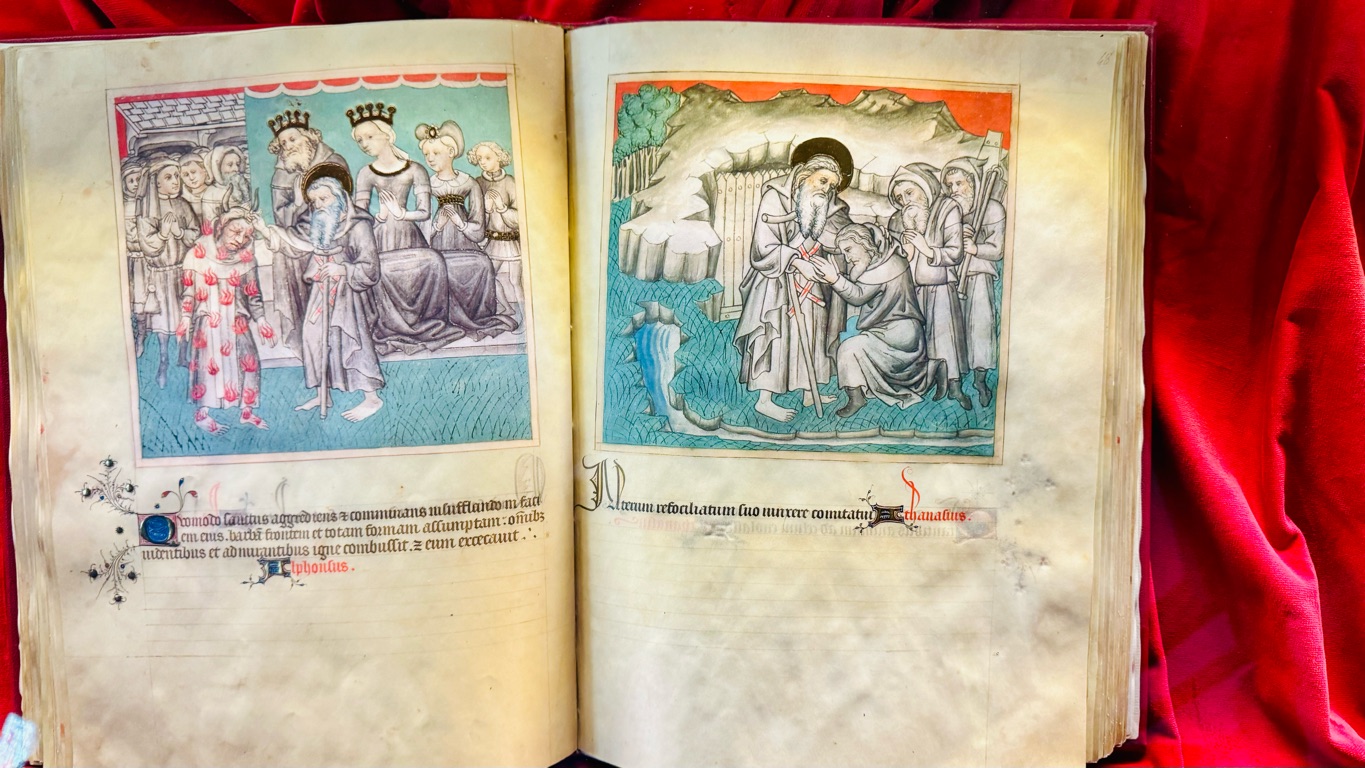 Quomodo sanctus aggrediens ⁊ comminans insufflando in faci
em eius. barbā frontem et totam formam assumptam: om̄ibꝫ
uidentibus et admirantibus igne combussit. ⁊ eum excecauit.
Alphonsus.
Iterum refociliatum suo iungere comitatui Athanasius.